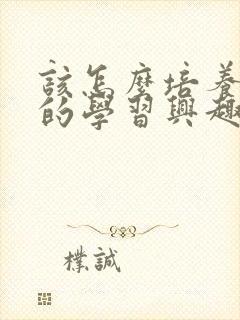 該怎麼培養
的學習興趣
樸誠